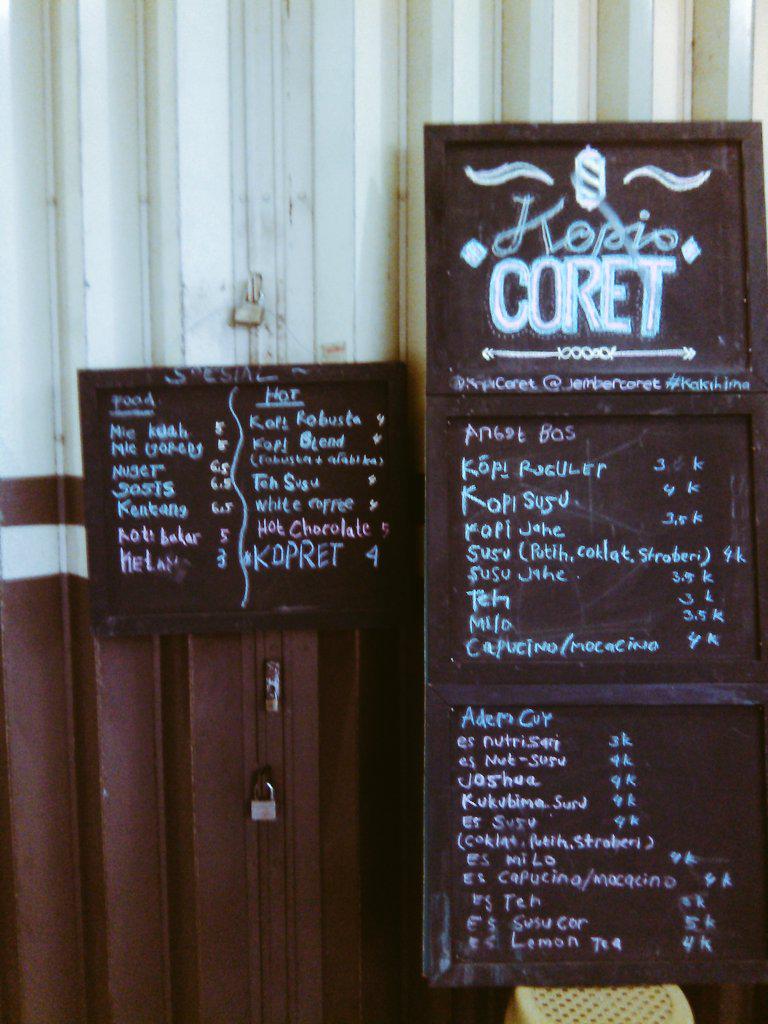 SPESIAL
Food
Mie kuah 5
Mie Goreng 5
Nuget 6.5
SOSIS 6.5
Kentang 6.5
Roti bakar 5
3
HOT
Kopi Robusta 4
Kopi Blend
(robusta + arabika)
Teh Susu
White coffee
Hot Chocolate 5
KOPRET 4
Kopio
CORET
@KopiCoret @Jembercoret #Kakihima
Anget Bos
Kopi Reguler 3 k
Kopi Susu 4 k
Kopi Jahe 3,5 k
Susu (Putih, Coklat, Stroberi) 4k
Susu Jahe 3.5 k
Teh 3 k
Milo 3.5k
Capucino/mocacino 4k
Adem Cuy
es nutrisari 3k
es Nut-Susu 4k
Joshua 4k
Kukubima Susu 4k
Es Susu 4k
(Coklat, Putih, Stroberi)
ES MILO 4k
Es Capucino/mocacino 4k
Es Teh
Es Susu Cor 5k
Es Lemon Tea 4k